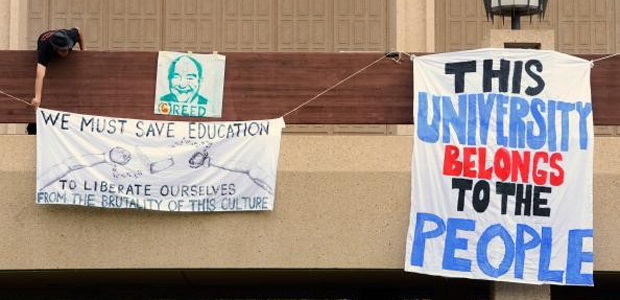 WE MUST SAVE EDUCATION
TO LIBERATE OURSELVES
FROM THE BRUTALITY OF THIS CULTURE
GREED
THIS
UNIVERSITY
BELONGS
TO THE
PEOPLE